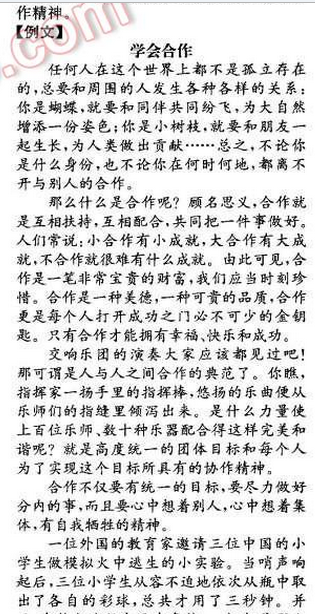 作精神。
【例文】
学会合作
任何人在这个世界上都不是孤立存在
的,总要和周围的人发生各种各样的关系:
你是蝴蝶,就要和同伴共同纷飞,为大自然
增添一份姿色;你是小树枝,就要和朋友一
起生长,为人类做出贡献……总之,不论你
是什么身份,也不论你在何时何地,都离不
开与别人的合作。
那么什么是合作呢?顾名思义,合作就
是互相扶持,互相配合,共同把一件事做好。
人们常说:小合作有小成就,大合作有大成
就,不合作就很难有什么成就。由此可见,合
作是一笔非常宝贵的财富,我们应当时刻珍
惜。合作是一种美德,一种可贵的品质,合作
更是每个人打开成功之门必不可少的金钥
匙。只有合作才能拥有幸福、快乐和成功。
交响乐团的演奏大家应该都见过吧!
那可谓是人与人之间合作的典范了。你瞧,
指挥家一扬手里的指挥棒,悠扬的乐曲便从
乐师们的指缝里倾泻出来。是什么力量使
上百位乐师、数十种乐器配合得这样完美和
谐呢?就是高度统一的团体目标和每个人
为了实现这个目标所具有的协作精神。
合作不仅要有统一的目标,要尽力做好
分内的事,而且要心中想着别人,心中想着集
体,有自我牺牲的精神。
一位外国的教育家邀请三位中国的小
学生做模拟火中逃生的小实验。当哨声响
起后,三位小学生从容不迫地依次从瓶中取
出了各自的彩球,总共才用了三秒钟。并